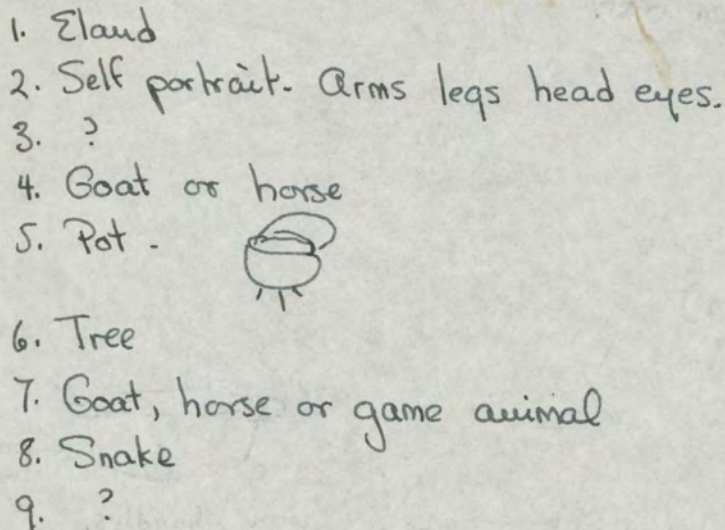 1. Eland
2. Self portrait. Arms legs head eyes.
3. ?
4. Goat or horse
5. Pot.
6. Tree
7. Goat, horse or game animal
8. Snake
9. ?